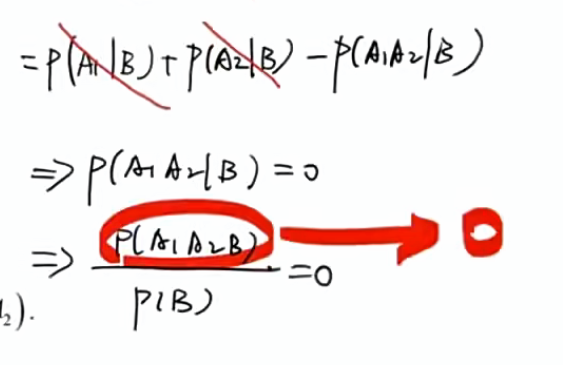 =P(A₁|B)+P(A₂|B)-P(A₁A₂|B)
=> P(A₁A₂|B)=0
=> P(A₁A₂B)/P(B)=0 → 0
₂).